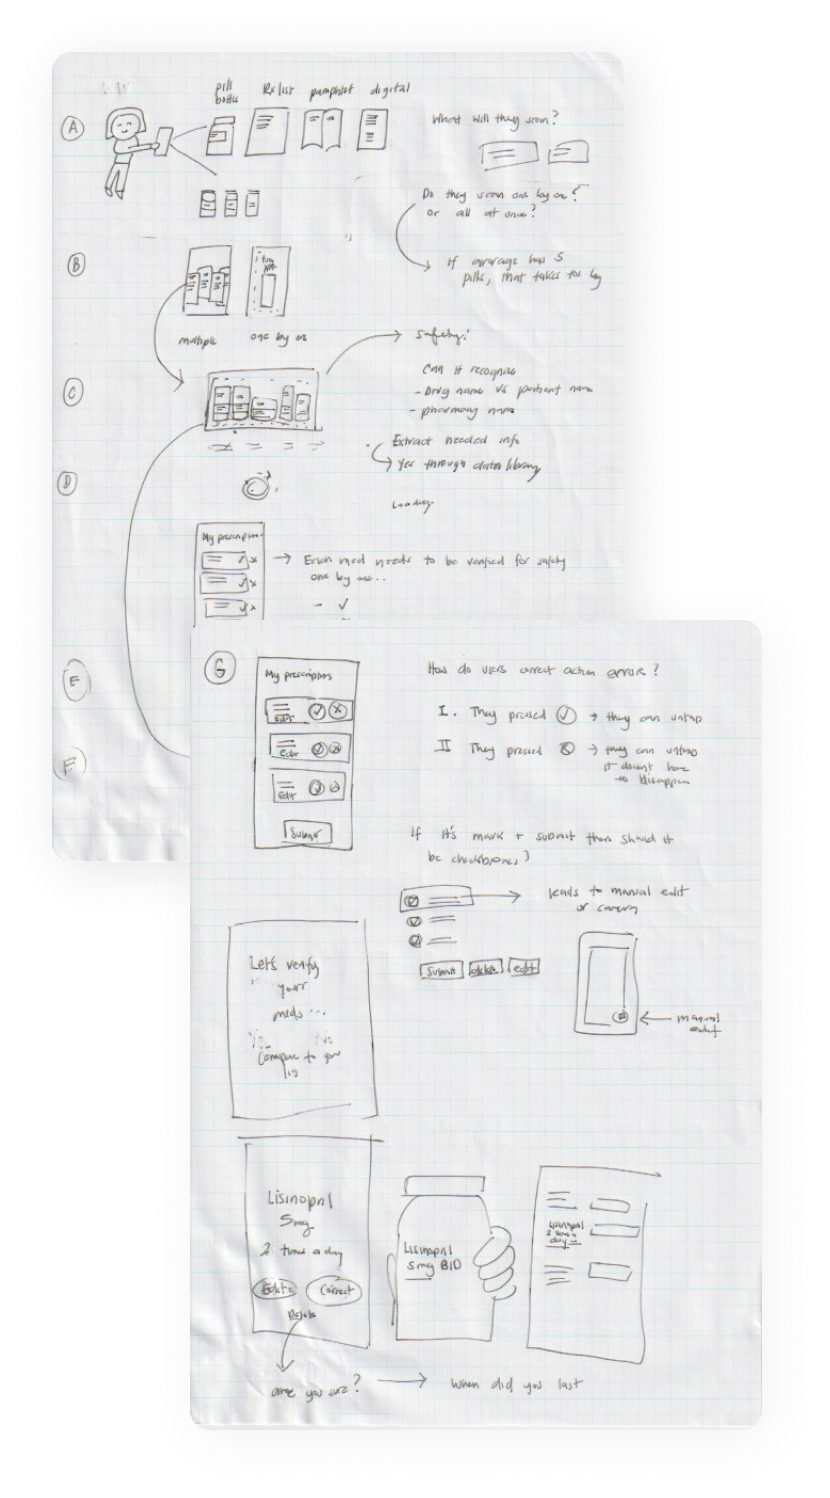 A
pill
bottle
Rx list
pamphlet
digital
What will they scan?
Do they scan one by one?
or all at once?
If average has 5
pills, that takes too long
B
multiple
one by one
Safety!
C
Can it recognize
- Drug name vs patient name
- pharmacy name
Extract needed info
Yes through data library
D
Loading
My prescription
Each med needs to be verified for safety
one by one..
- ✓
E
F
G
My prescriptions
Edit
Edit
Edit
Submit
How do users correct action errors?
I. They pressed ✓ → they can untap
II They pressed ⊗ → they can untap
it doesn't have
to disappear
If it's mark + submit then should it
be checkboxes?
leads to manual edit
or camera
Submit delete edit
manual
edit
Lets verify
your
meds ...
Compare to your
Lisinopril
5mg
2 times a day
Correct
Delete
Lisinopril
5mg BID
Lisinopril
2 times a
day
are you sure? → When did you last